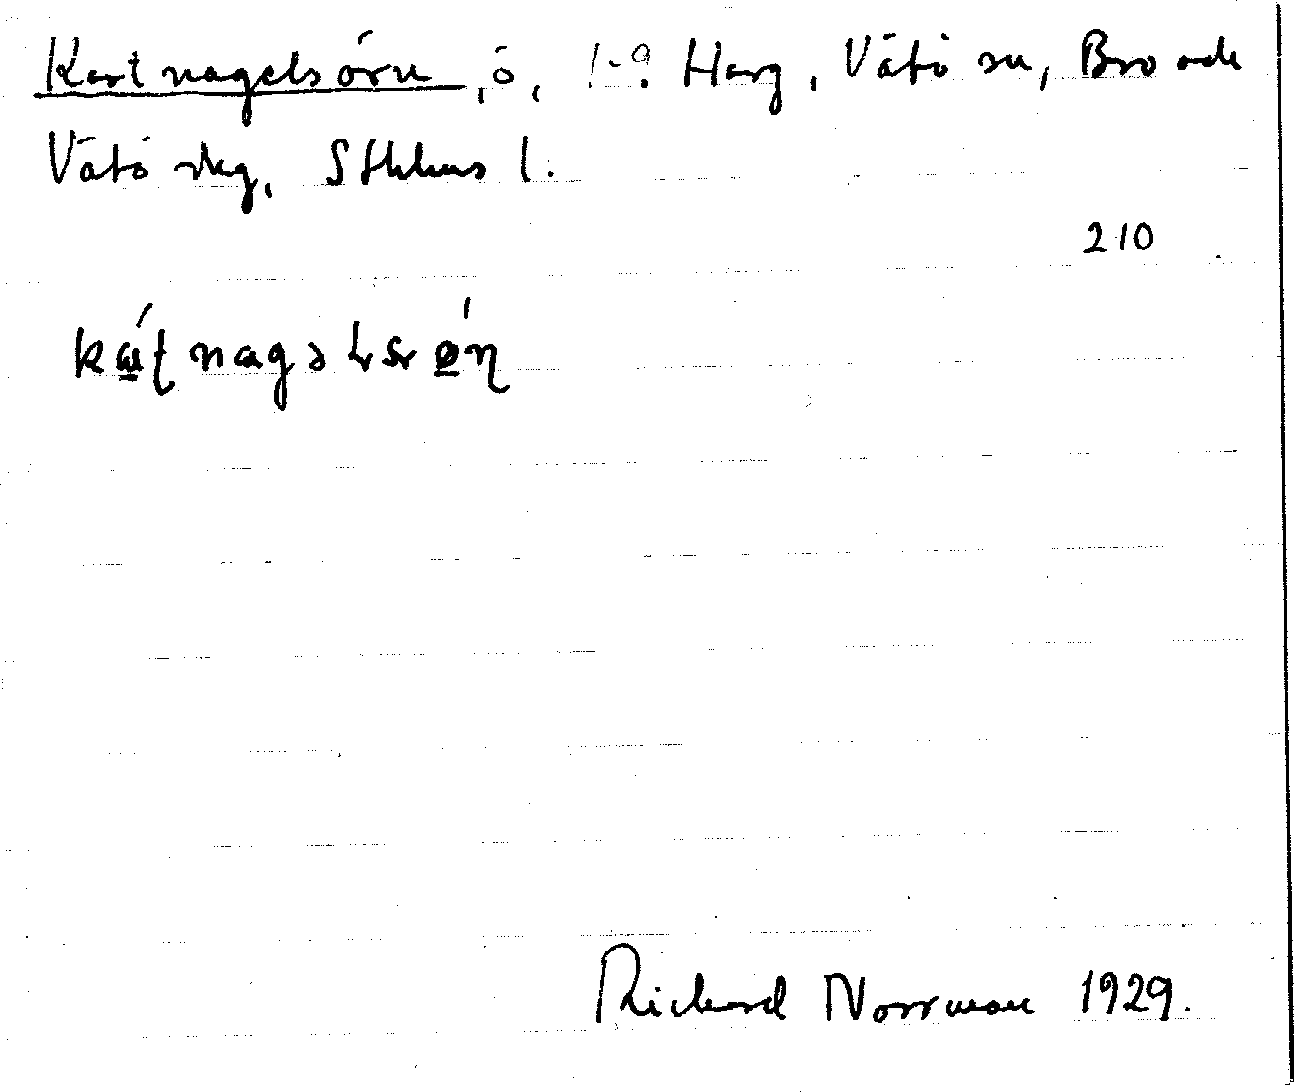 Kartnagelsörn, ö, 1-9. Harg, Vätö sn, Bro och
Vätö skg, Sthlms l.
210
Richard Norrman 1929.